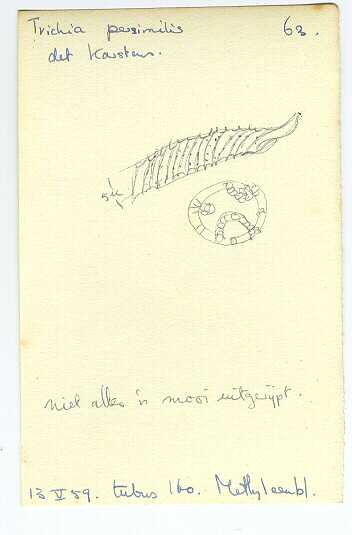 Trichia persimilis 63.
det Karsten.
5 μ
niet alles is mooi uitgerijpt.
13 V 59. tubus 160. Methyleenbl.